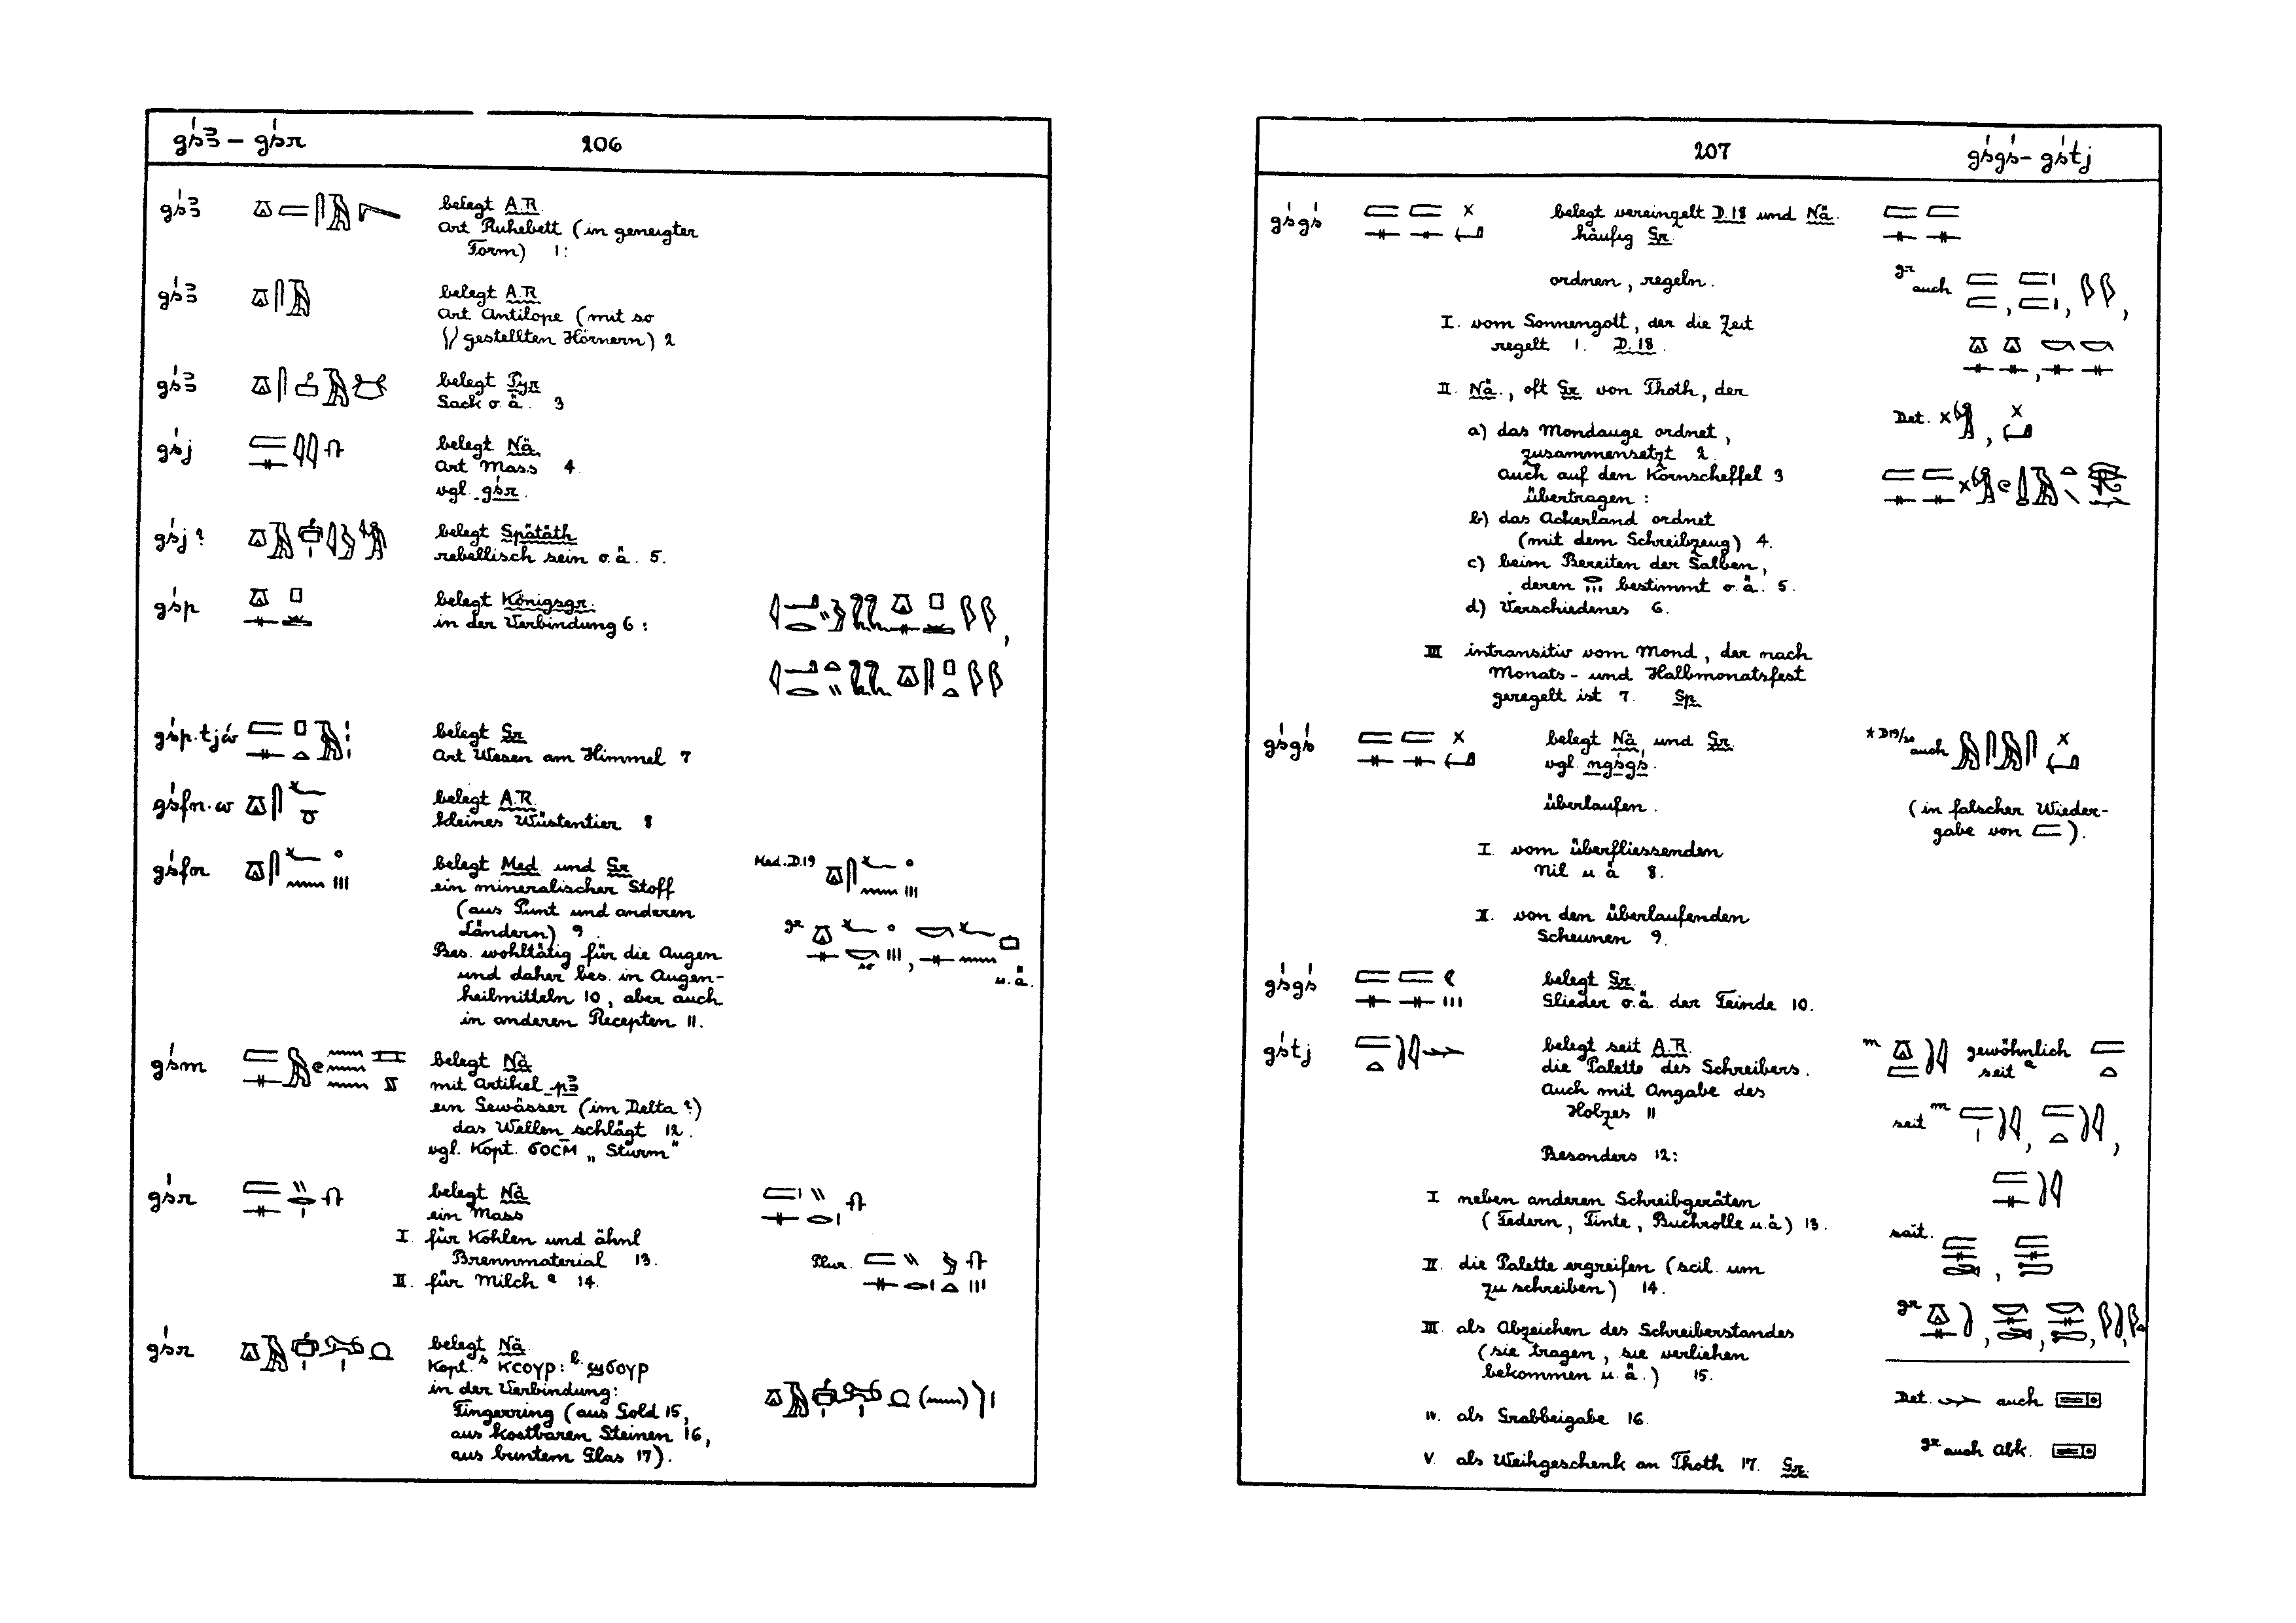 gś3 – gśr 206
gś3 belegt A.R.
Art Ruhebett (in geneigter
Form) 1:
gś3 belegt A.R.
Art Antilope (mit so
gestellten Hörnern) 2
gś3 belegt Pyr
Sack o.ä. 3
gśj belegt Nä.
Art Mass 4.
vgl. gśr.
gśj ? belegt Spätäth
rebellisch sein o.ä. 5.
gśp belegt Königsgr.
in der Verbindung 6:
gśp.tjw belegt Gr.
Art Wesen am Himmel 7
gśfn.w belegt A.R.
kleines Wüstentier 8
gśfn belegt Med. und Gr. Med. D.19
ein mineralischer Stoff
(aus Punt und anderen
Ländern) 9. gr
Bes. wohltätig für die Augen
und daher bes. in Augen- u.ä.
heilmitteln 10, aber auch
in anderen Recepten 11.
gśm belegt Nä
mit Artikel p3
ein Gewässer (im Delta ?)
das Wellen schlägt 12.
vgl. Kopt. ϭⲟⲥⲙ̄ „Sturm"
gśr belegt Nä
ein Mass
I. für Kohlen und ähnl
Brennmaterial 13. Plur.
II. für Milch a 14.
gśr belegt Nä
Kopt. s ⲕⲥⲟⲩⲣ: b. ϣϭⲟⲩⲣ
in der Verbindung:
Fingerring (aus Gold 15,
aus kostbaren Steinen 16,
aus buntem Glas 17).
207 gśgś – gśtj
gśgś belegt vereinzelt D.18 und Nä.
häufig Gr.
ordnen, regeln. gr auch
I. vom Sonnengott, der die Zeit
regelt 1. D.18.
II. Nä., oft Gr. von Thoth, der Det.
a) das Mondauge ordnet,
zusammensetzt 2.
auch auf den Kornscheffel 3
übertragen:
b) das Ackerland ordnet
(mit dem Schreibzeug) 4.
c) beim Bereiten der Salben,
deren bestimmt o.ä. 5.
d) Verschiedenes 6.
III intransitiv vom Mond, der nach
Monats- und Halbmonatsfest
geregelt ist 7. Sp.
gśgś belegt Nä. und Gr. * D19/20 auch
vgl. ngśgś.
überlaufen. (in falscher Wieder-
gabe von ).
I. vom überfliessenden
Nil u.ä 8.
II. von den überlaufenden
Scheunen 9.
gśgś belegt Gr.
Glieder o.ä. der Feinde 10.
gśtj belegt seit A.R. m gewöhnlich
die Palette des Schreibers. seit a
Auch mit Angabe des
Holzes 11 seit m
Besonders 12:
I neben anderen Schreibgeräten
(Federn, Tinte, Buchrolle u.ä) 13. sait.
II. die Palette ergreifen (scil. um
zu schreiben) 14.
gr
III als Abzeichen des Schreiberstandes
(sie tragen, sie verliehen
bekommen u.ä.) 15.
Det. auch
IV. als Grabbeigabe 16.
gr auch Abk.
V. als Weihgeschenk an Thoth 17. Gr.